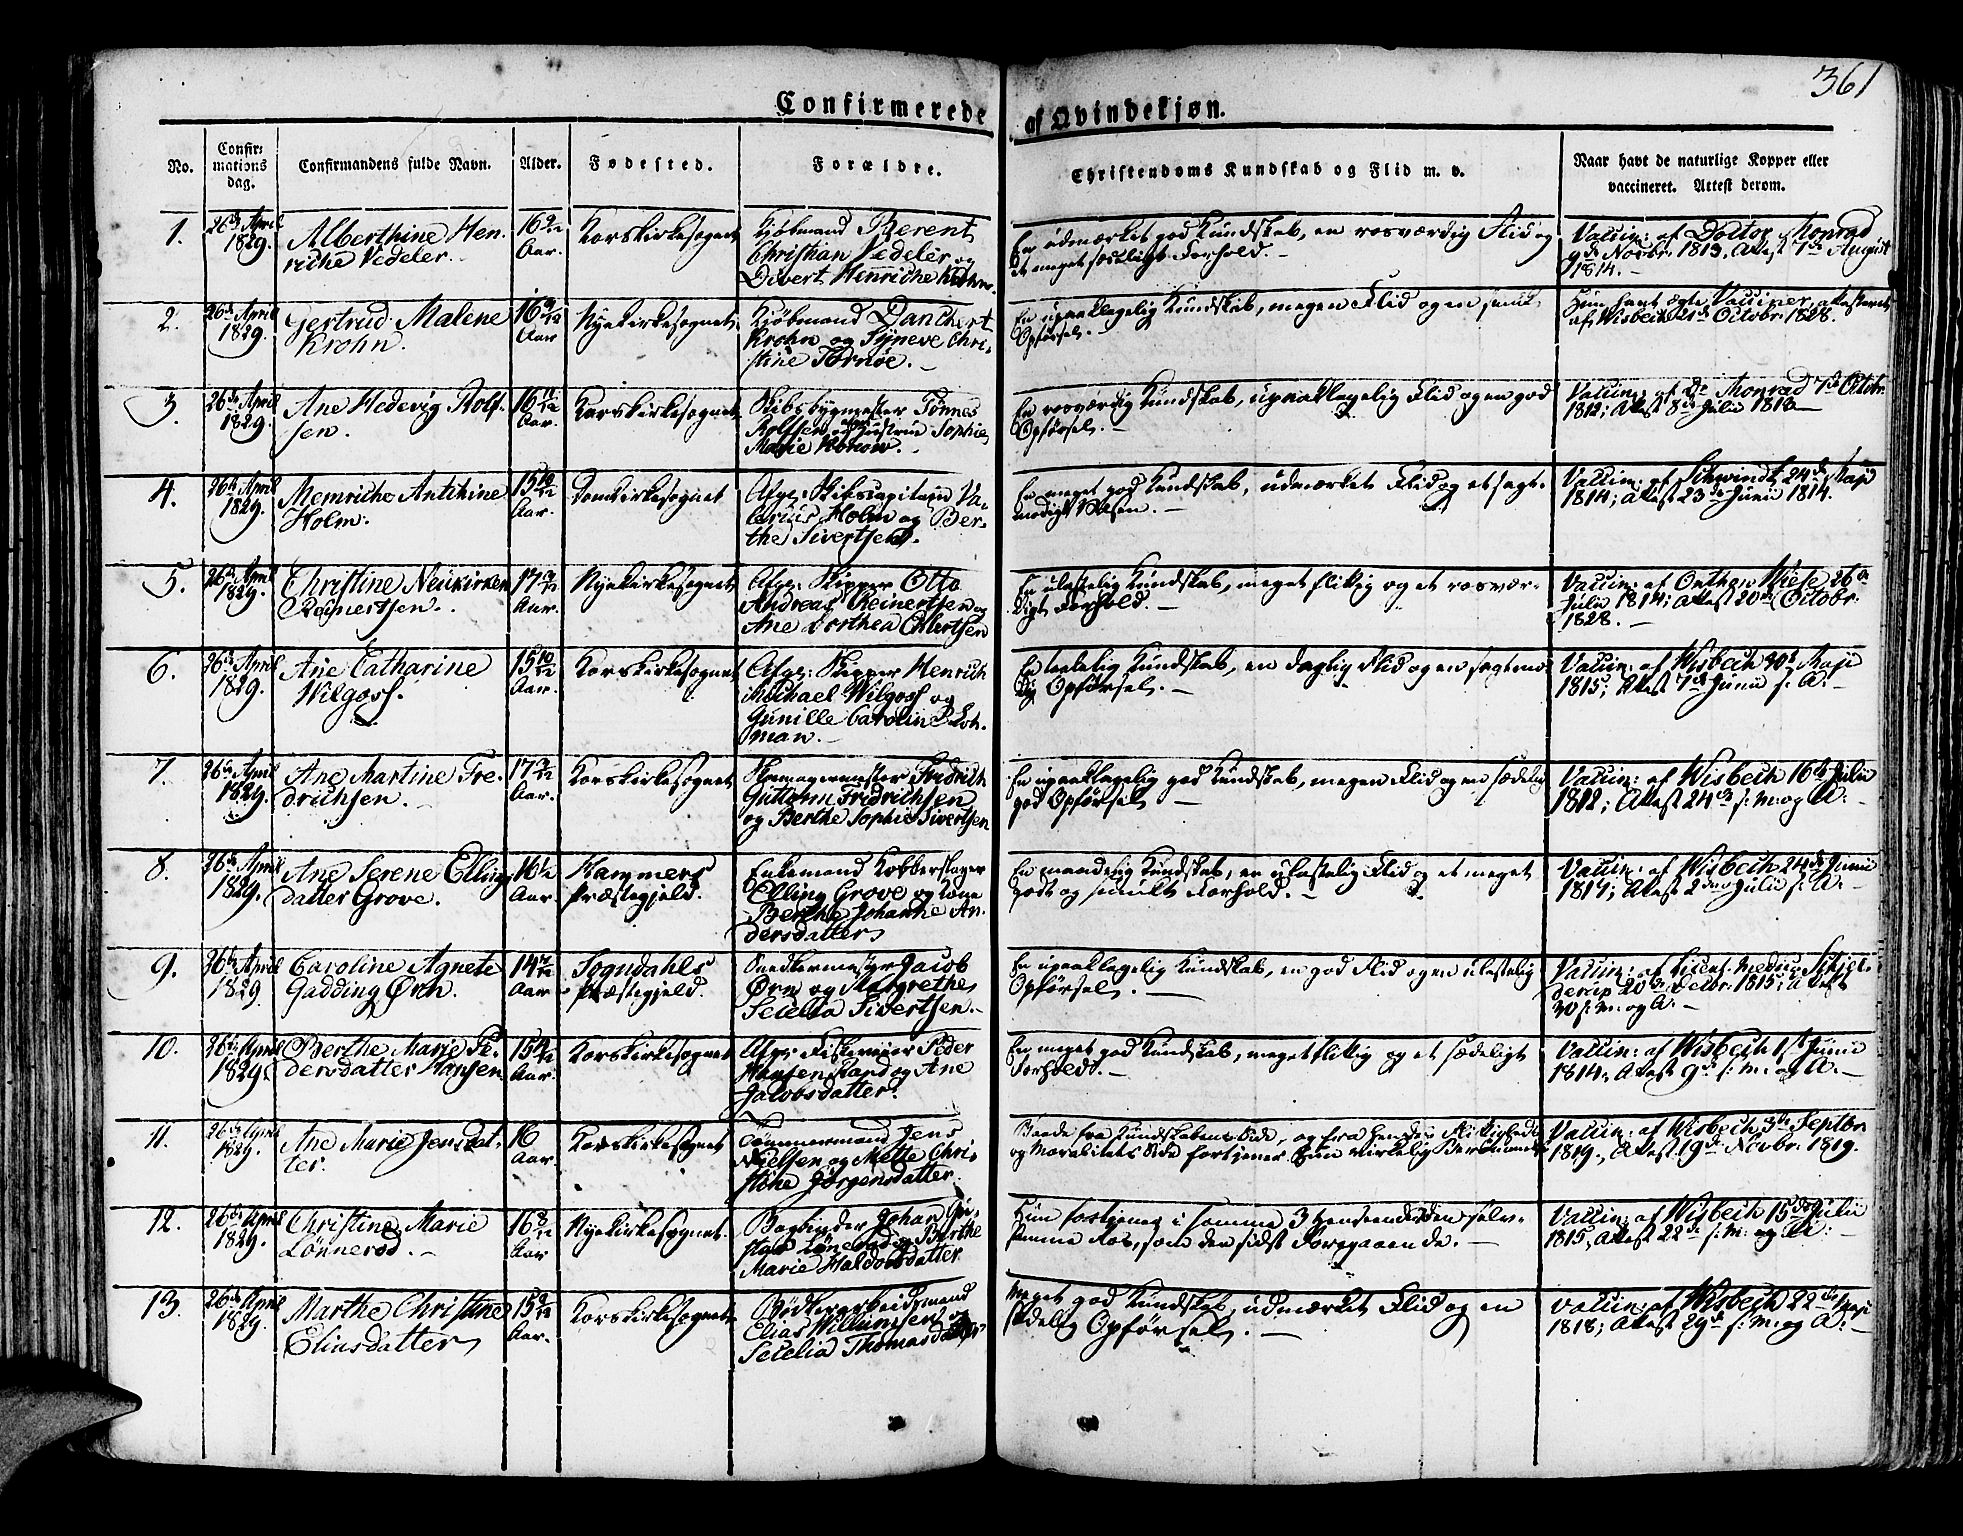 361
Confirmerede af Qvindekjøn.
No.
Confir-
mations
dag.
Confirmandens fulde Navn.
Alder.
Fødested.
Forældre.
Christendoms Kundskab og Flid m. v.
Naar havt de naturlige Kopper eller
vaccineret. Attest derom.
1.
26de April
1829.
Alberthine Hen-
riche Vedeler.
16 2/12
Aar.
Korskirkesognet
Kjøbmand Berent
Christian Vedeler og
Divert Henriche Krohn.
En udmærket god Kundskab, en rosværdig Flid og
et meget sædeligt Forhold.
Vaccin: af Doctor Monrad
9de Novbr. 1813, Attest 7de August
1814.
2.
26de April
1829.
Gertrud Malene
Krohn.
16 3/12
Aar
Nyekirkesognet
Kjøbmand Danchert
Krohn og Syneve Chri-
stine Tornøe.
En upaaklagelig Kundskab, megen Flid og en
Opførsel.
Hun havt ægte Vacciner, attesteret
af Wisbech 21de Octobr. 1828.
3.
26de April
1829.
Ane Hedevig Rolf-
sen.
16 11/12
Aar.
Korskirkesognet
Skibsbygmester Tønnes
Rolfsen og Hustrue Sophie
Marie Konow.
En rosværdig Kundskab, upaaklagelig Flid og en god
Opførsel.
Vaccin: af Dr Monrad 7de Octobr.
1812; Attest 8de Julii 1813
4.
26de April
1829.
Memriche Antikine
Holm.
15 10/12
Aar.
Domkirkesognet
Afg: Skibscapitain Va-
lerius Holm og Ber-
the Sivertsen.
En meget god Kundskab, udmærket Flid og et sagt-
modigt Væsen.
Vaccin: af Schwindt 24de Maji
1814; Attest 23de Junii 1814.
5.
26de April
1829.
Christine Neukirken
Reinertsen.
17 2/12
Aar.
Nyekirkesognet
Afg: Skipper Otto
Andreas Reinertsen og
Ane Dorthea Ellertsen
En ulastelig Kundskab, meget flittig og et rosvær-
digt Forhold.
Vaccin: af Wiese 26de
Julii 1814; Attest 20de Octobr.
1828.
6.
26de April
1829.
Ane Catharine
Wilgoss.
15 10/12
Aar.
Korskirkesognet
Afg: Skipper Henrich
Michael Wilgoss og
Gunille Caroline Loh-
man.
En taalelig Kundskab, en daglig Flid og en sagtmo-
dig Opførsel.
Vaccin: af Wisbech 30te Maji
1815; Attest 7de Junii s: A:
7.
26de April
1829.
Ane Martine Fre-
drichsen.
17 2/12
Aar.
Korskirkesognet
Fridrich
Guttorm Fridrichsen
og Berthe Sophie Sivertsen
En upaaklagelig god Kundskab, megen Flid og en sædelig
god Opførsel
Vaccin: af Wisbech 16de Julii
1812; Attest 24de s: m: og A:
8.
26de April
1829.
Ane Serene Elling-
datter Grove.
16 1/2
Aar.
Hammers
Præstegjeld.
Enkemand Kobberslager
Elling Grove og Kone
Berthe Johanne An-
dersdatter
En maadelig Kundskab, en ulastelig Flid og et meget
godt og Forhold.
Vaccin: af Wisbech 24de Junii
1817; Attest 2den Julii s: A:
9.
26de April
1829.
Caroline Agnete
Gadding Ørn.
14 7/12
Aar
Sogndahls
Præstegjeld.
Snedkermester Jacob
Ørn og Margrethe
Cecelia Sivertsen.
En upaaklagelig Kundskab, en god Flid og en ulastelig
Opførsel.
Vaccin: af Licent. Medicin Schjel-
derup 20de Decbr. 1815; Attest
30 s: m: og A:
10.
26de April
1829.
Berthe Marie Pe-
dersdatter Hansen
15 4/12
Aar.
Korskirkesognet
Afg: Peder
Hansen Rand og Ane
Jacobsdatter.
En meget god Kundskab, meget flittig og et sædeligt
Forhold.
Vaccin: af Wisbech 1ste Junii
1814; Attest 9de s: m: og A:
11.
26de April
1829.
Ane Marie Jensdat-
ter.
16
Aar.
Korskirkesognet
Tømmermand Jens
Nielsen og Mette Chri-
stine Jørgensdatter.
Baade fra Kundskabens Side, og fra hendes Flittigheds
og Moralitets Side fortjener hun virkelig Berømmelse
Vaccin: af Wisbech 3die Septbr
1819, Attest 19de Novbr. 1819.
12.
26de April
1829.
Christine Marie
Lønnerød.
16 8/12
Aar
Nyekirkesognet.
Bogbinder Johan Gu-
stav Lønnerød og Berthe
Marie Haldorsdatter.
Hun fortjener i samme 3 Henseender den selv-
samme Roes, som den sidst Foregaaende.
Vaccin: af Wisbech 15de Julii
1815, Attest 22de s: m: og A:
13.
26de April
1829.
Marthe Christine
Eliasdatter
15 9/12
Aar.
Korskirkesognet
Bødkerarbeidsmand
Elias Willumsen og
Cecelia Thomasdatter
Meget god Kundskab, udmærket Flid og en
sædelig Opførsel.
Vaccin: af Wisbech 22de Maji
1818; Attest 29de s: m: og A: